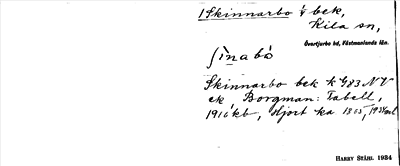 1 Skinnarbo bek,
Kila sn,
Övertjurbo hd, Västmanlands län.
Skinnarbo bek k G83 NV
ek Borgman: Tabell,
1910kb, Hjort ka 1305,
HARRY STÅHL 1934